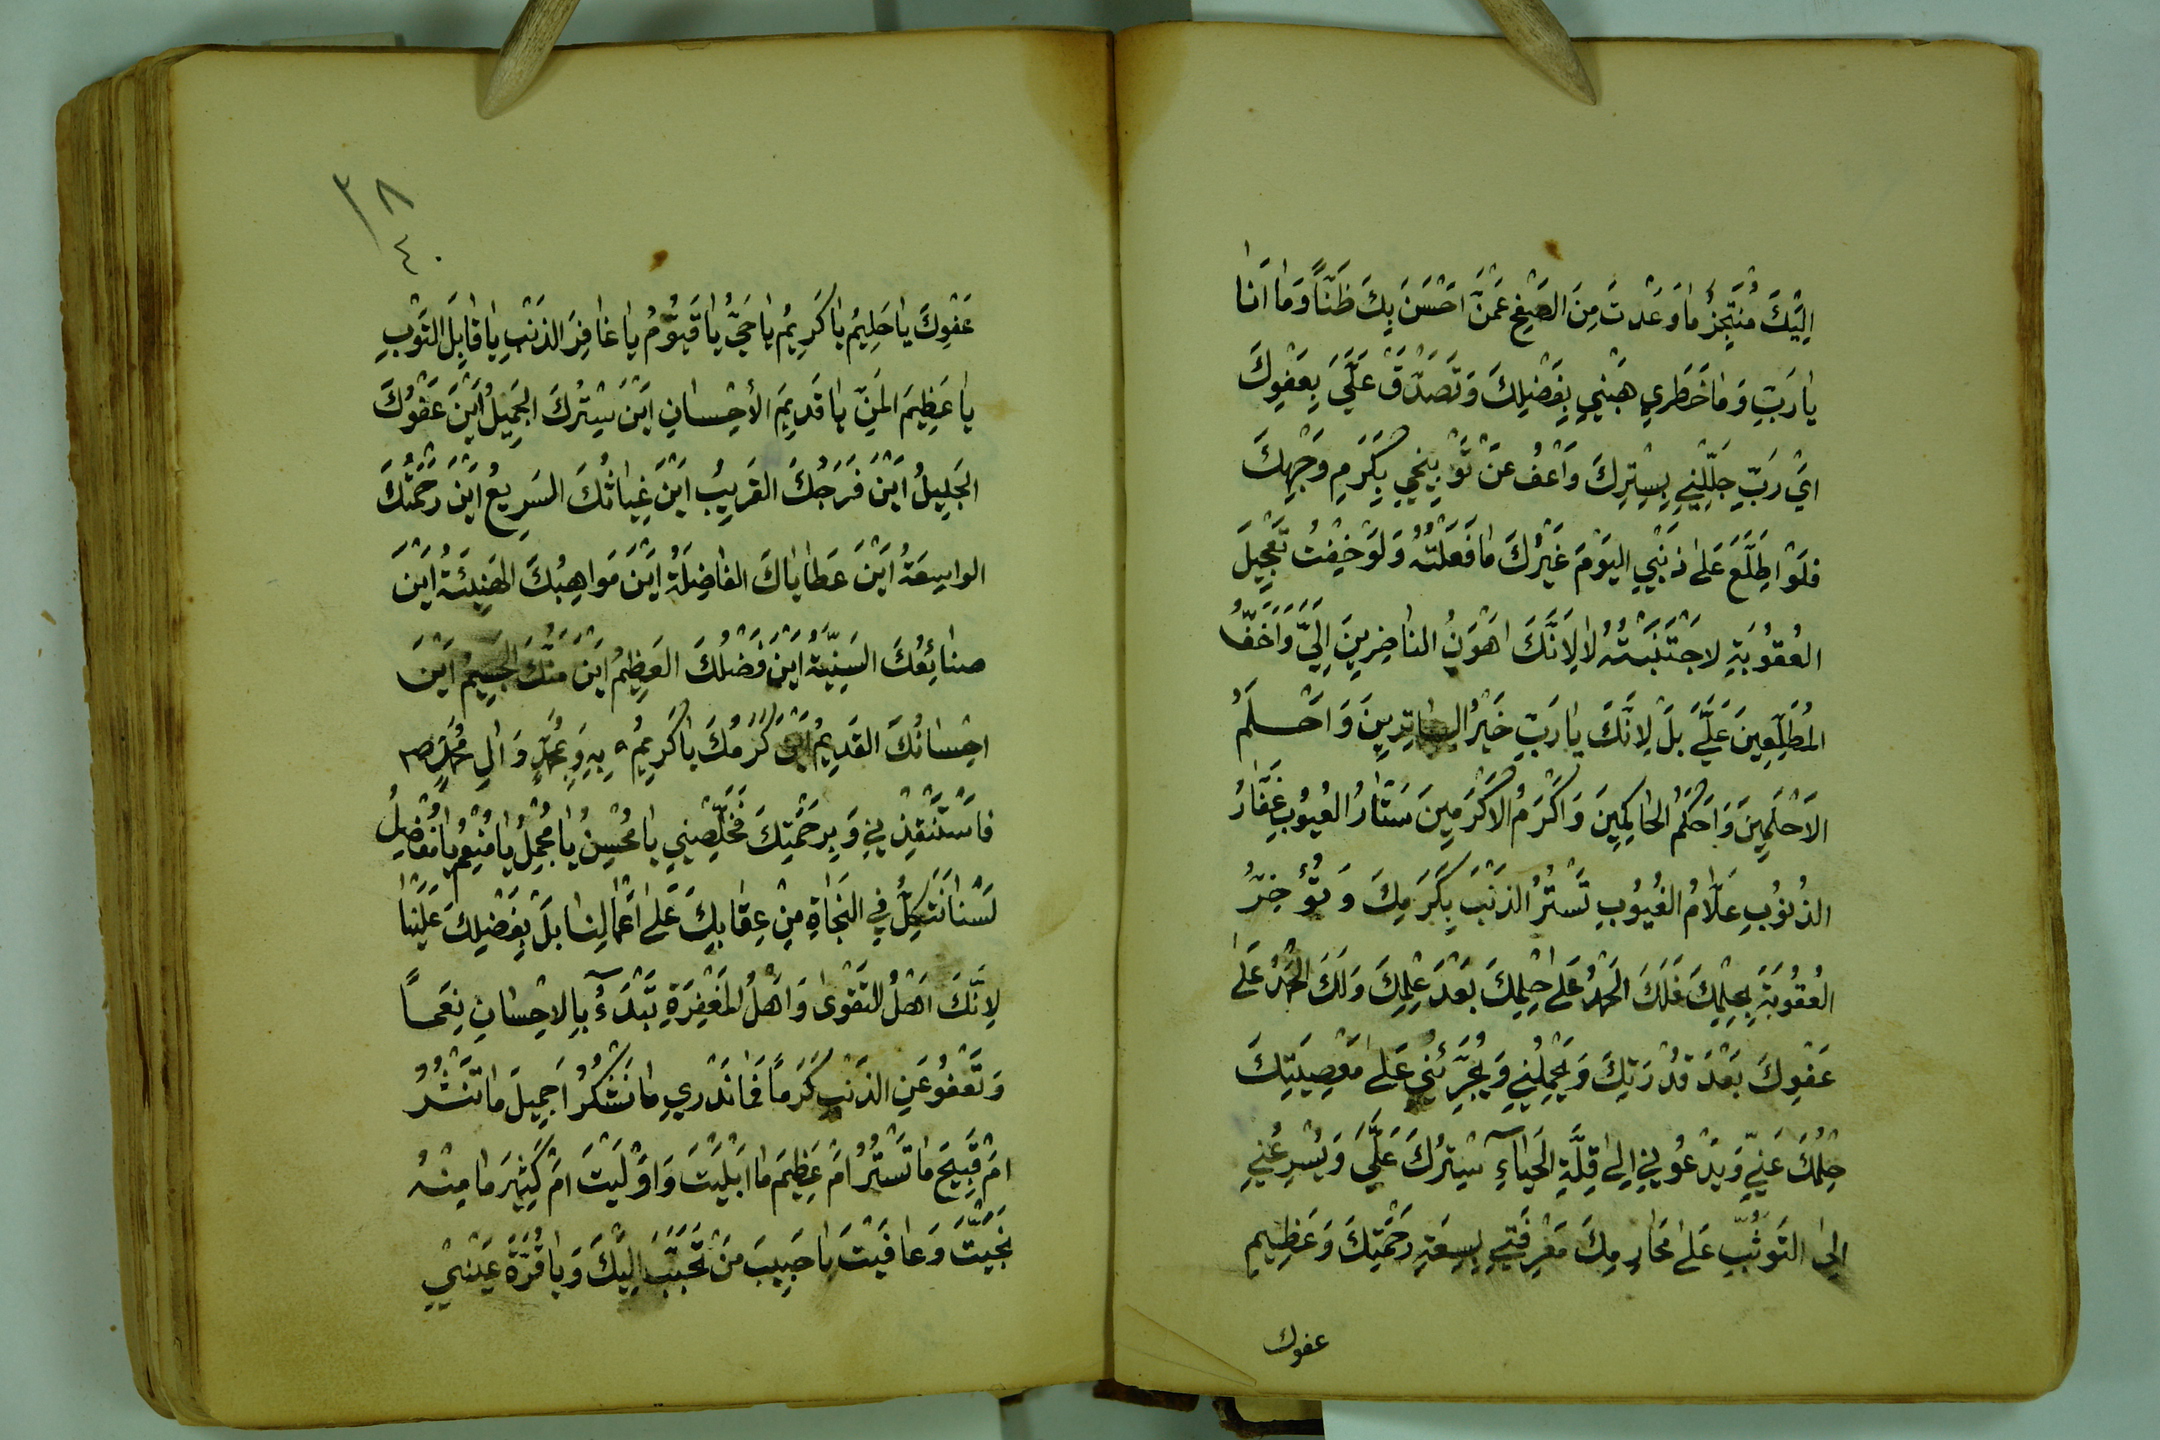 اِلَيْكَ مُنْتَجِزٌ مٰا وَعَدْتَ مِنَ الصَّفْحِ عَمَّنْ اَحْسَنَ بِكَ ظَنّاً وَمٰا اَنَا
يٰا رَبِّ وَمٰا خَطَرِي هَبْنِي بِفَضْلِكَ وَتَصَدَّقْ عَلَيَّ بِعَفْوِكَ
اَيْ رَبِّ جَلِّلْنِي بِسِتْرِكَ وَاعْفُ عَنْ تَوْبِيخِي بِكَرَمِ وَجْهِكَ
فَلَوِ اطَّلَعَ عَلٰى ذَنْبِي اليَوْمَ غَيْرُكَ مٰا فَعَلْتُهُ وَلَوْ خِفْتُ تَعْجِيلَ
العُقُوبَةِ لاجْتَنَبْتُهُ لٰا لِاَنَّكَ اَهْوَنُ الناضِرِينَ اِلَيَّ وَاَخَفُّ
المُطَّلِعِينَ عَلَيَّ بَلْ لِاَنَّكَ يٰا رَبِّ خَيْرُ السٰاتِرِينَ وَاَحْلَمُ
الاَحْلَمِينَ وَاَحْكَمُ الحٰاكِمِينَ وَاَكْرَمُ الاَكْرَمِينَ سَتّٰارُ العُيُوبِ غَفّٰارُ
الذُنُوبِ عَلّٰامُ الغُيُوبِ تَسْتُرُ الذَنْبَ بِكَرَمِكَ وَتُؤَخِّرُ
العُقُوبَةَ بِحِلْمِكَ فَلَكَ الحَمْدُ عَلٰى حِلْمِكَ بَعْدَ عِلْمِكَ وَلَكَ الحَمْدُ عَلٰى
عَفْوِكَ بَعْدَ قُدْرَتِكَ وَيَحْمِلُنِي وَيُجَرِّئُنِي عَلٰى مَعْصِيَتِكَ
حِلْمُكَ عَنِّي وَيَدْعُونِي اِلىٰ قِلَّةِ الحَيٰاءِ سِتْرُكَ عَلَيَّ وَيُسْرِعُنِي
اِلىٰ التَوَثُّبِ عَلٰى مَحٰارِمِكَ مَعْرِفَتِي بِسِعَةِ رَحْمَتِكَ وَعَظِيمِ
عفوك
٣٨
٤٠
عَفْوِكَ يٰا حَلِيمُ يٰا كَرِيمُ يٰا حَيُّ يٰا قَيُّومُ يٰا غٰافِرَ الذَنْبِ يٰا قٰابِلَ التَوْبِ
يٰا عَظِيمَ المَنِّ يٰا قَدِيمَ الأحْسٰانِ اَيْنَ سِتْرُكَ الجَمِيلُ اَيْنَ عَفْوُكَ
الجَلِيلُ اَيْنَ فَرَجُكَ القَرِيبُ اَيْنَ غِيٰاثُكَ السَرِيعُ اَيْنَ رَحْمَتُكَ
الواسِعَةُ اَيْنَ عَطٰايٰاكَ الفٰاضِلَةُ اَيْنَ مَوٰاهِبُكَ الهَنِيئَةُ اَيْنَ
صنٰائِعُكَ السَنِيَّةُ اَيْنَ فَضْلُكَ العَظِيمُ اَيْنَ مَنُّكَ الجَسِيمُ اَيْنَ
اِحْسٰانُكَ القَدِيمُ اَيْنَ كَرَمُكَ يٰا كَرِيمُ بِهِ وَبِمُحَمَّدٍ وَاٰلِ مُحَمَّدٍ ص
فَاسْتَنْقِذْنِي وَبِرَحْمَتِكَ فَخَلِّصْنِي يٰا مُحْسِنُ يٰا مُجْمِلُ يٰا مُنْعِمُ يٰا مُفْضِلُ
لَسْنٰا نَتَّكِلُ فِي النَجٰاةِ مِنْ عِقٰابِكَ عَلٰى اَعْمٰالِنٰا بَلْ بِفَضْلِكَ عَلَيْنٰا
لِاَنَّكَ اَهْلُ التَقْوىٰ وَاَهْلُ المَغْفِرَةِ تَبْدَءُ بِالاِحْسٰانِ نِعَماً
وَتَعْفُو عَنِ الذَنْبِ كَرَماً فَمٰا نَدْرِي مٰا نَشْكُرُ اَجَمِيلَ مٰا تَنْشُرُ
اَمْ قَبِيحَ مٰا تَسْتُرُ اَمْ عَظِيمَ مٰا اَبْلَيْتَ وَاَوْلَيْتَ اَمْ كَثِيرَ مٰا مِنْهُ
نَجَّيْتَ وَعٰافَيْتَ يٰا حَبِيبَ مَنْ تَحَبَّبَ اِلَيْكَ وَيٰا قُرَّةَ عَيْنِي